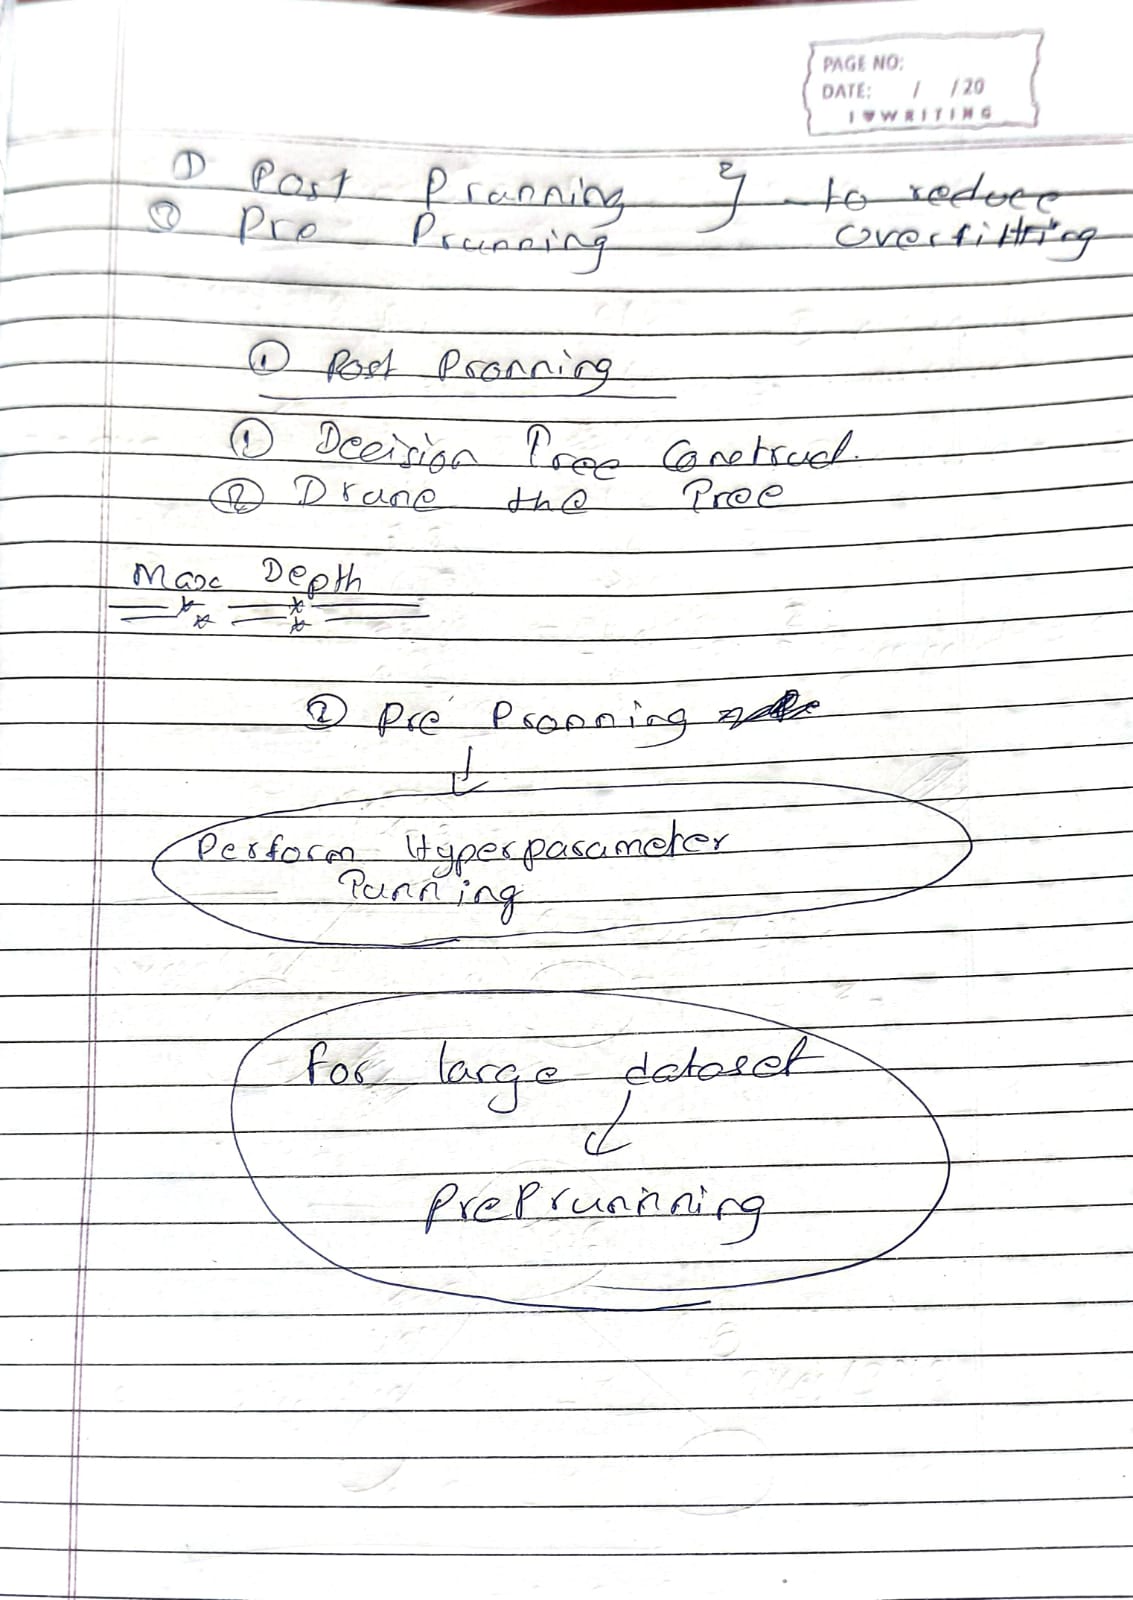 PAGE NO:
DATE: / /20
I ♥ WRITING
① Post Prunning } to reduce
② Pre Prunning overfitting
① Post Pronning
① Decision Tree Construct.
② Prune the Tree
Max Depth
② Pre Pronning
↓
Perform Hyperparameter
Tunning
for large dataset
↓
PrePrunnning